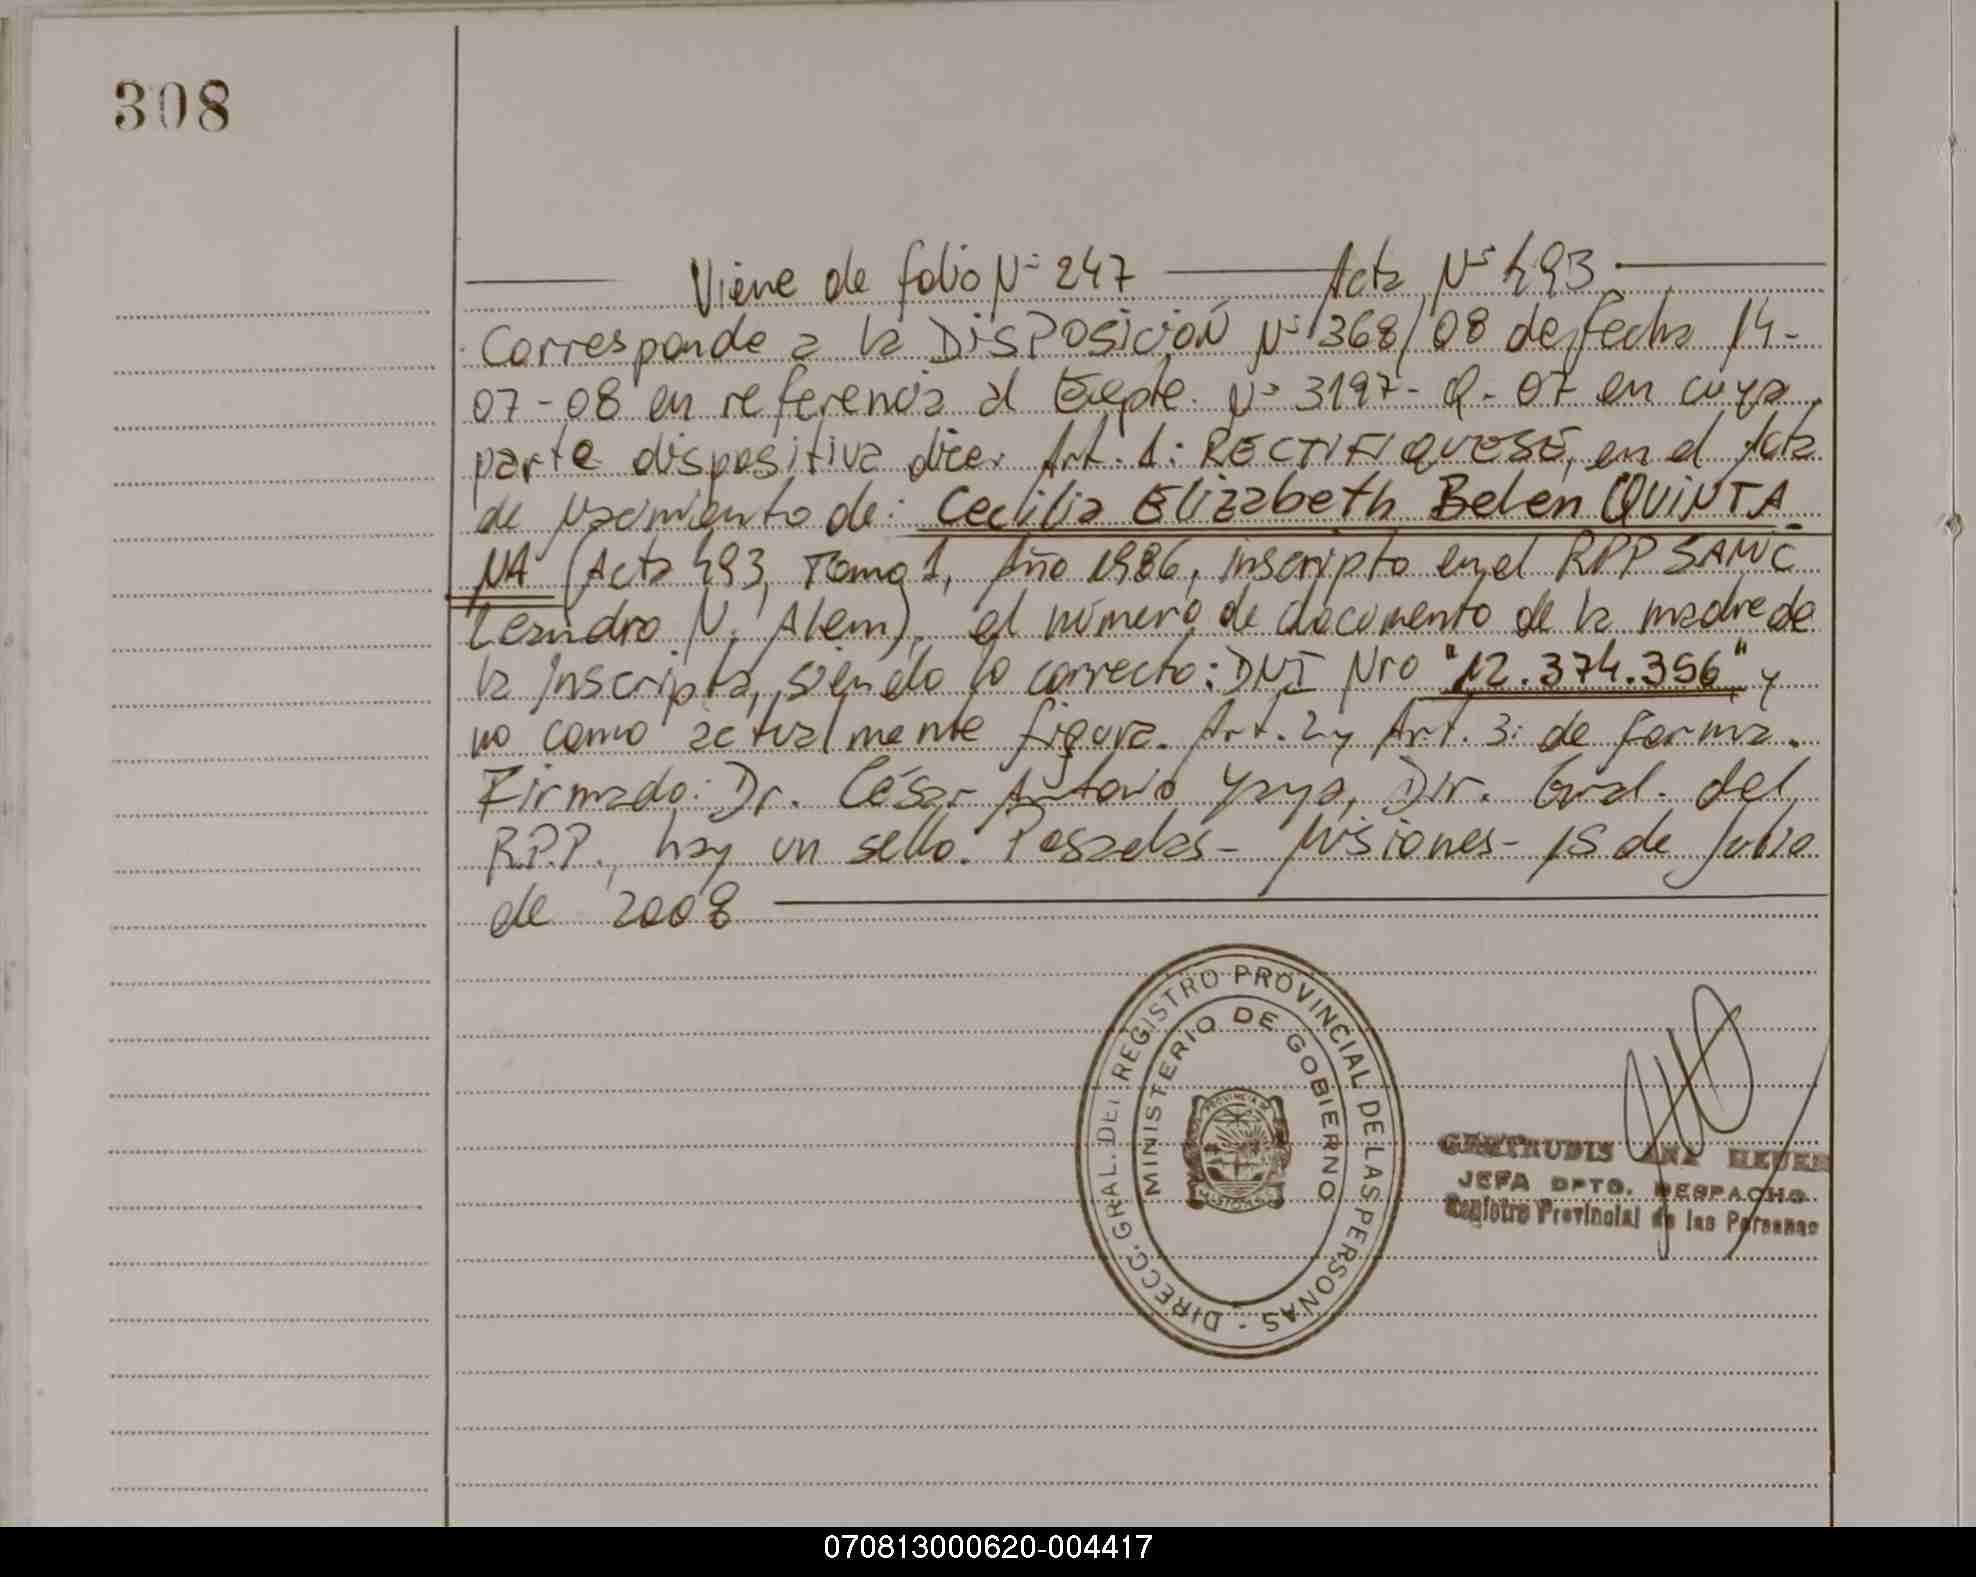 308
Viene de folio Nº 247 Acta Nº 493
Corresponde a la DISPOSICIÓN Nº 368/08 de fecha 14-
07-08 en referencia al Expte. Nº 3197-Q-07 en cuya
parte dispositiva dice: Art. 1: RECTIFIQUESE, en el Acta
de Nacimiento de: Cecilia Elizabeth Belen QUINTA
NA (Acta 493, Tomo 1, Año 1986, inscripto en el RPP SAMIC
Leandro N. Alem), el número de documento de la madre de
la Inscripta, siendo lo correcto: DNI Nro "12.374.356" y
no como actualmente figura. Art. 2 y Art. 3: de forma.
Firmado: Dr. César Antonio Yaya, Dir. Gral. del
R.P.P., hay un sello. Posadas - Misiones - 15 de Julio
de 2008
DIRECC. GRAL. DEL REGISTRO PROVINCIAL DE LAS PERSONAS -
MINISTERIO DE GOBIERNO
PROVINCIA DE
MISIONES
GERTRUDIS ANA
JEFA DPTO. DESPACHO
Registro Provincial de las Personas
070813000620-004417